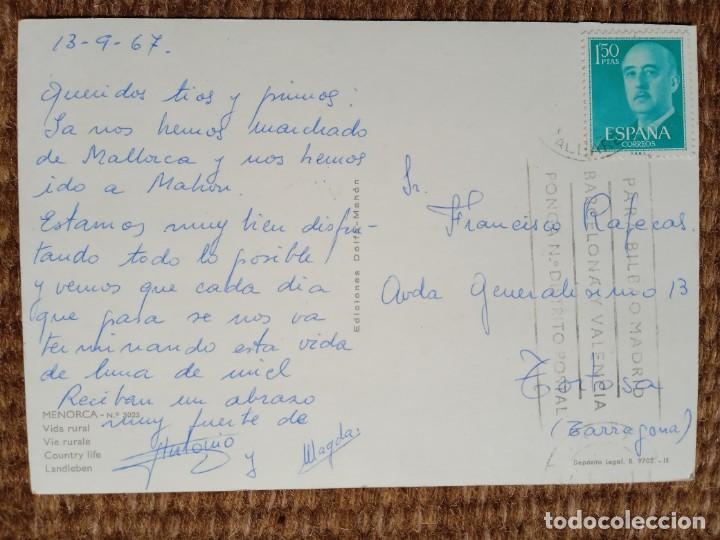 13-9-67.
Queridos tios y primos:
Ya nos hemos marchado
de Mallorca y nos hemos
ido a Mahón.
Estamos muy bien disfru-
tando todo lo posible
y vemos que cada dia
que pasa se nos va
terminando esta vida
de luna de miel
Reciban un abrazo
muy fuerte de
Antonio y Magda.
MENORCA - N.º 3023
Vida rural
Vie rurale
Country life
Landleben
Ediciones Dolfo-Mahón
1'50
PTAS
ESPAÑA
CORREOS
PARA BILBAO MADRID
BARCELONA Y VALENCIA
PONGA N.º DISTRITO POSTAL
Sr.
Francisco Rafecas.
Avda Generalisimo 13
Tortosa
(Tarragona)
Depósito Legal. B. 9702 - IX
todocoleccion.net